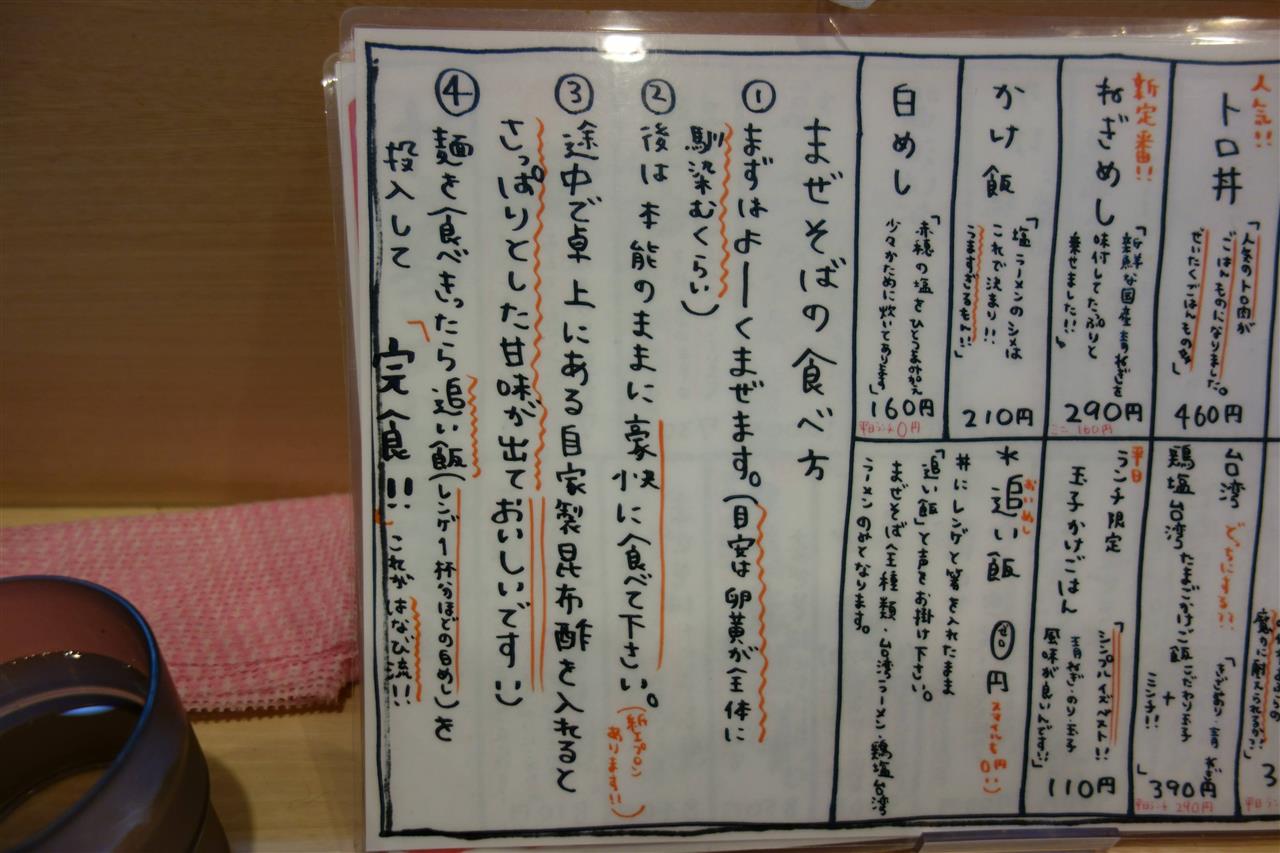 人気!!
トロ丼
「人気のトロ肉が
ごはんものになりました。
ぜいたくごはんものです」
460円
新定番!!
ねぎめし
「新鮮な国産青ねぎを
味付してたぷりと
乗せました!!」
290円
ミニ 160円
かけ飯
「塩ラーメンのシメは
これで決まり!!
うますぎるもん!!」
210円
白めし
「赤穂の塩をひとつまみ加え
少々かために炊いてあります」
160円
平日ランチ0円
台湾
どっちにする??
鶏塩台湾
たまごかけご飯
こだわり玉子
+
ミンチ!!
390円
平日ランチ 290円
平日
ランチ限定
玉子かけごはん
「シンプルイズベスト!!
青ねぎ・のり・玉子
風味が良いんです!!」
110円
おいめし
*追い飯 ゼロ円
スマイルも0円!!)
丼にレンゲと箸を入れたまま
「追い飯」と声をお掛け下さい。
まぜそば全種類・台湾ラーメン・鶏塩台湾
ラーメンのみとなります。
まぜそばの食べ方
①まずはよーくまぜます。(目安は卵黄が全体に
馴染むくらい)
②後は本能のままに豪快に食べて下さい。
(紙エプロン
あります!!)
③途中で卓上にある自家製昆布酢を入れると
さっぱりとした甘味が出ておいしいです!!)
④麺を食べきったら追い飯(レンゲ1杯分ほどの白めし)を
投入して「完食!!」これがはなび流!!